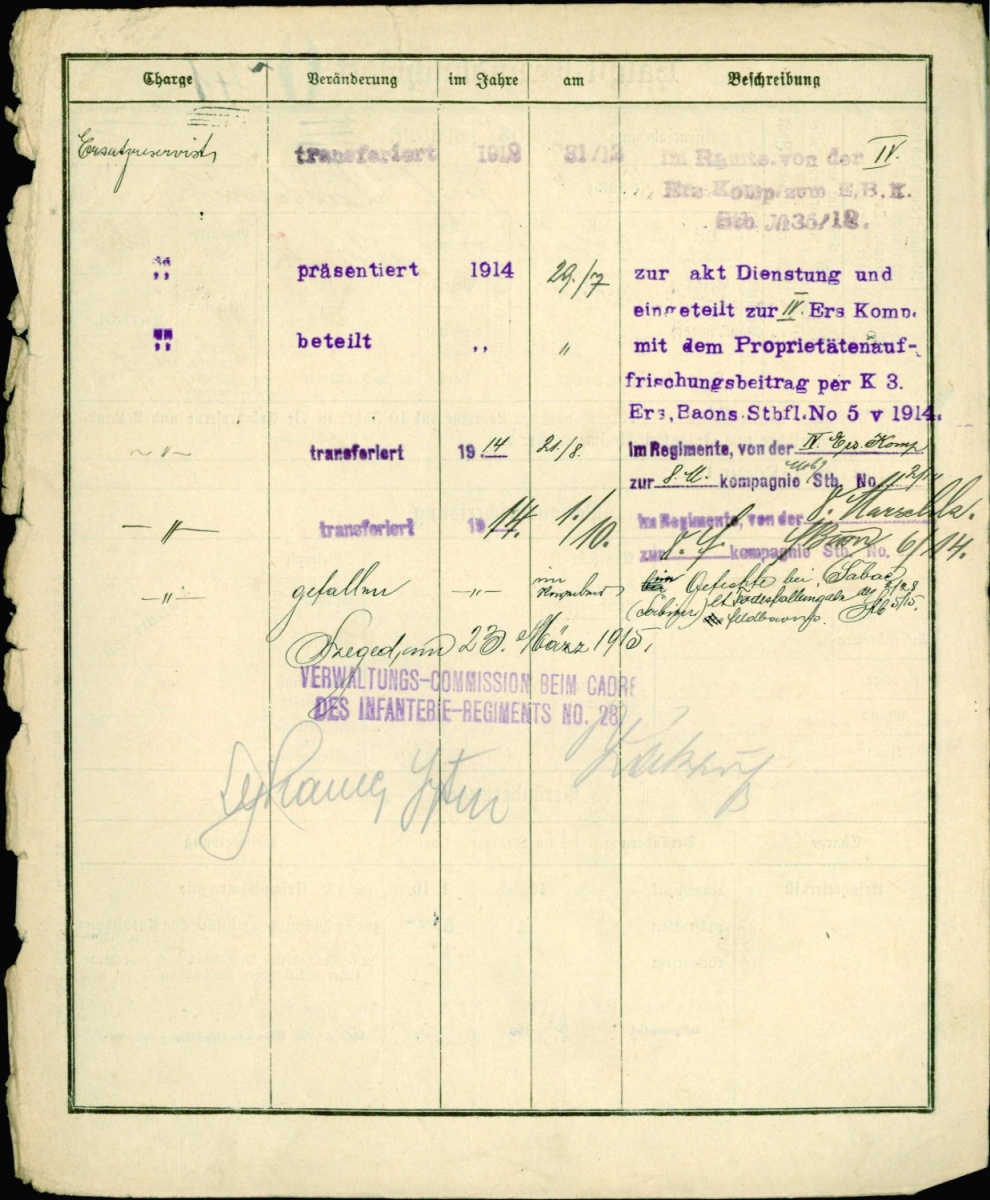 Charge Veränderung im Jahre am Beschreibung
Ersatzreservist transferiert 1912 31/12 im Rgmte. von der IV.
Ers Komp. zum E.B.K.
Stb №135/12.
„ präsentiert 1914 29./7 zur akt Dienstung und
eingeteilt zur IV. Ers Komp.
„ beteilt „ „ mit dem Proprietätenauf-
frischungsbeitrag per K 3.
Ers, Baons. Stbfl. No 5 v 1914.
„ transferiert 1914 21./8. im Regimente, von der IV. Ers. Komp
zur 8. M. kompagnie Stb. No.
— „ — transferiert 1914. 1./10. im Regimente, von der 8. Marschk.
zur 8. F. kompagnie Stb. No. 6/14.
— „ — gefallen — „ — im November im Gefechte bei Sabac
(Serbien) lt Todesfallangabe des
Feldbaons.
Szeged, am 23. März 1915.
VERWALTUNGS-COMMISSION BEIM CADRE
DES INFANTERIE-REGIMENTS NO. 28